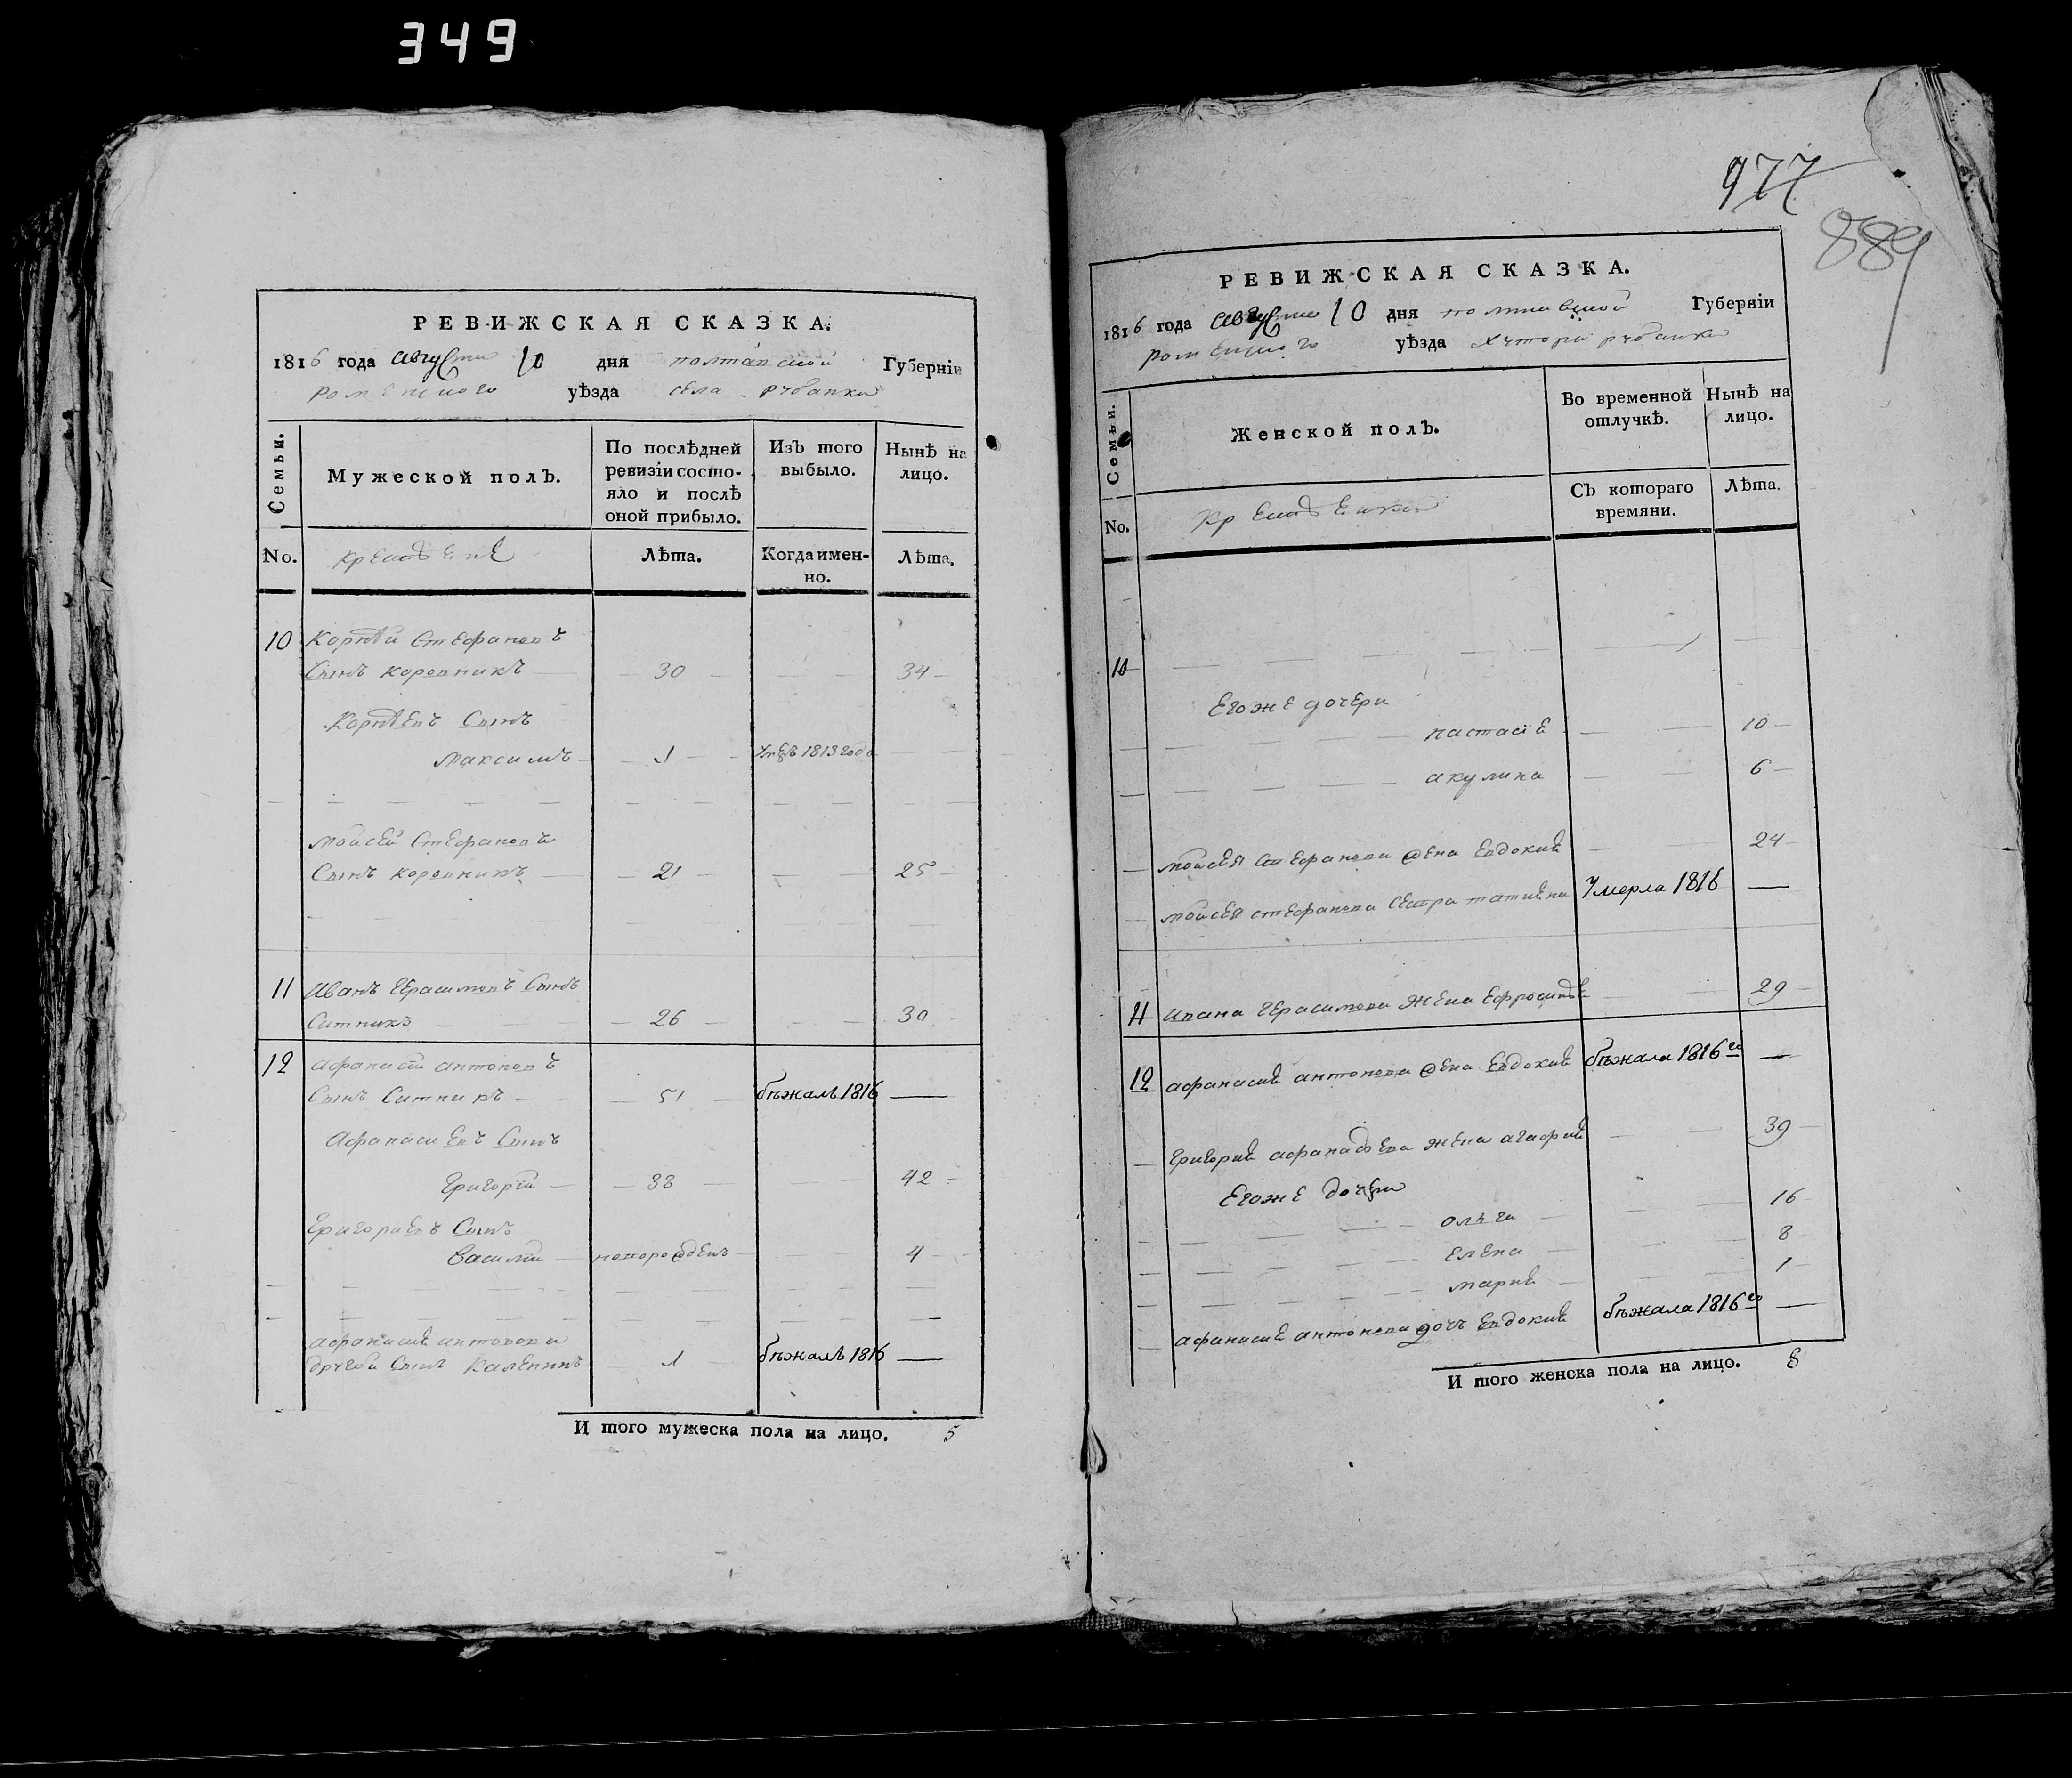 349
РЕВИЖСКАЯ СКАЗКА.
1816 года августа 10 дня полтавской Губерніи
роменского уѣзда села рубанки
Семьи.
Мужеской полъ.
По послѣдней ревизіи состо-
яло и послѣ
оной прибыло.
Изъ того
выбыло.
Нынѣ на
лицо.
No.
крестьяне
Лѣта.
Когда имен-
но.
Лѣта.
10 Корнѣй Стефановъ
Сынъ коровникъ 30 34
Корнѣевъ Сынъ
максимъ 1 умре 1813 года
мойсей Стефановъ
Сынъ коровникъ 21 25
11 Иванъ Герасимовъ Сынъ
Ситникъ 26 30
12 афанасій антоновъ
Сынъ Ситникъ 51 бѣжалъ 1816
Афанасиевъ Сынъ
григорій 38 42
григориевъ Сынъ
василій новорожденъ 4
афанасия антонова
другой Сынъ Каленикъ 1 бѣжалъ 1816
И того мужеска пола на лицо. 5
977
889
РЕВИЖСКАЯ СКАЗКА.
1816 года августа 10 дня полтавской Губерніи
роменского уѣзда хутора рубанки
Семьи.
Женской полъ.
Во временной
отлучкѣ.
Нынѣ на
лицо.
No.
Съ котораго
времяни.
Лѣта.
10
Егоже дочери
настасіе 10
акулина 6
мойсея стефанова жена Евдокия 24
мойсея стефанова сестра татияна Умерла 1816
11 ивана герасимова жена Ефросиния 29
12 афанасия антонова жена Евдокия бѣжала 1816го
григория афанасьева жена агафия 39
Егоже дочери
ольга 16
елена 8
мария 1
афанасия антонова дочь Евдокия бѣжала 1816го
И того женска пола на лицо. 8